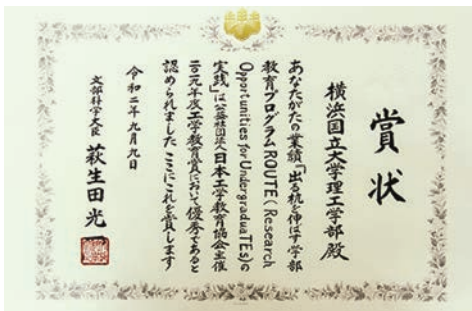 賞状
横浜国立大学理工学部 殿
あなたがたの業績「出る杭を伸ばす学部
教育プログラムROUTE(Research
Opportunities for UndergraduaTEs)の
実践」は公益社団法人日本工学教育協会主催
二〇一九年度工学教育賞において優秀であると
認められました ここにこれを賞します
令和二年九月九日
文部科学大臣 萩生田光一